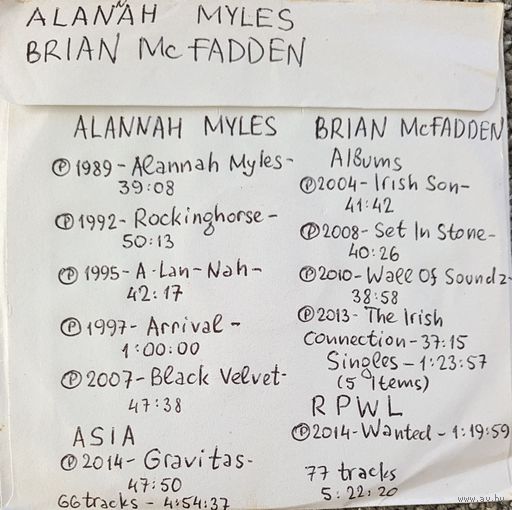 ALANAH MYLES
BRIAN McFADDEN
ALANNAH MYLES
Ⓟ 1989 - Alannah Myles -
39:08
Ⓟ 1992 - Rockinghorse -
50:13
Ⓟ 1995 - A-Lan-Nah -
42:17
Ⓟ 1997 - Arrival -
1:00:00
Ⓟ 2007 - Black Velvet -
47:38
ASIA
Ⓟ 2014 - Gravitas -
47:50
66 tracks - 4:54:37
BRIAN McFADDEN
Albums
Ⓟ 2004 - Irish Son -
41:42
Ⓟ 2008 - Set In Stone -
40:26
Ⓟ 2010 - Wall Of Soundz -
38:58
Ⓟ 2013 - The Irish
Connection - 37:15
Singles - 1:23:57
(5 Items)
RPWL
Ⓟ 2014 - Wanted - 1:19:59
77 tracks
5:22:20
www.av.by